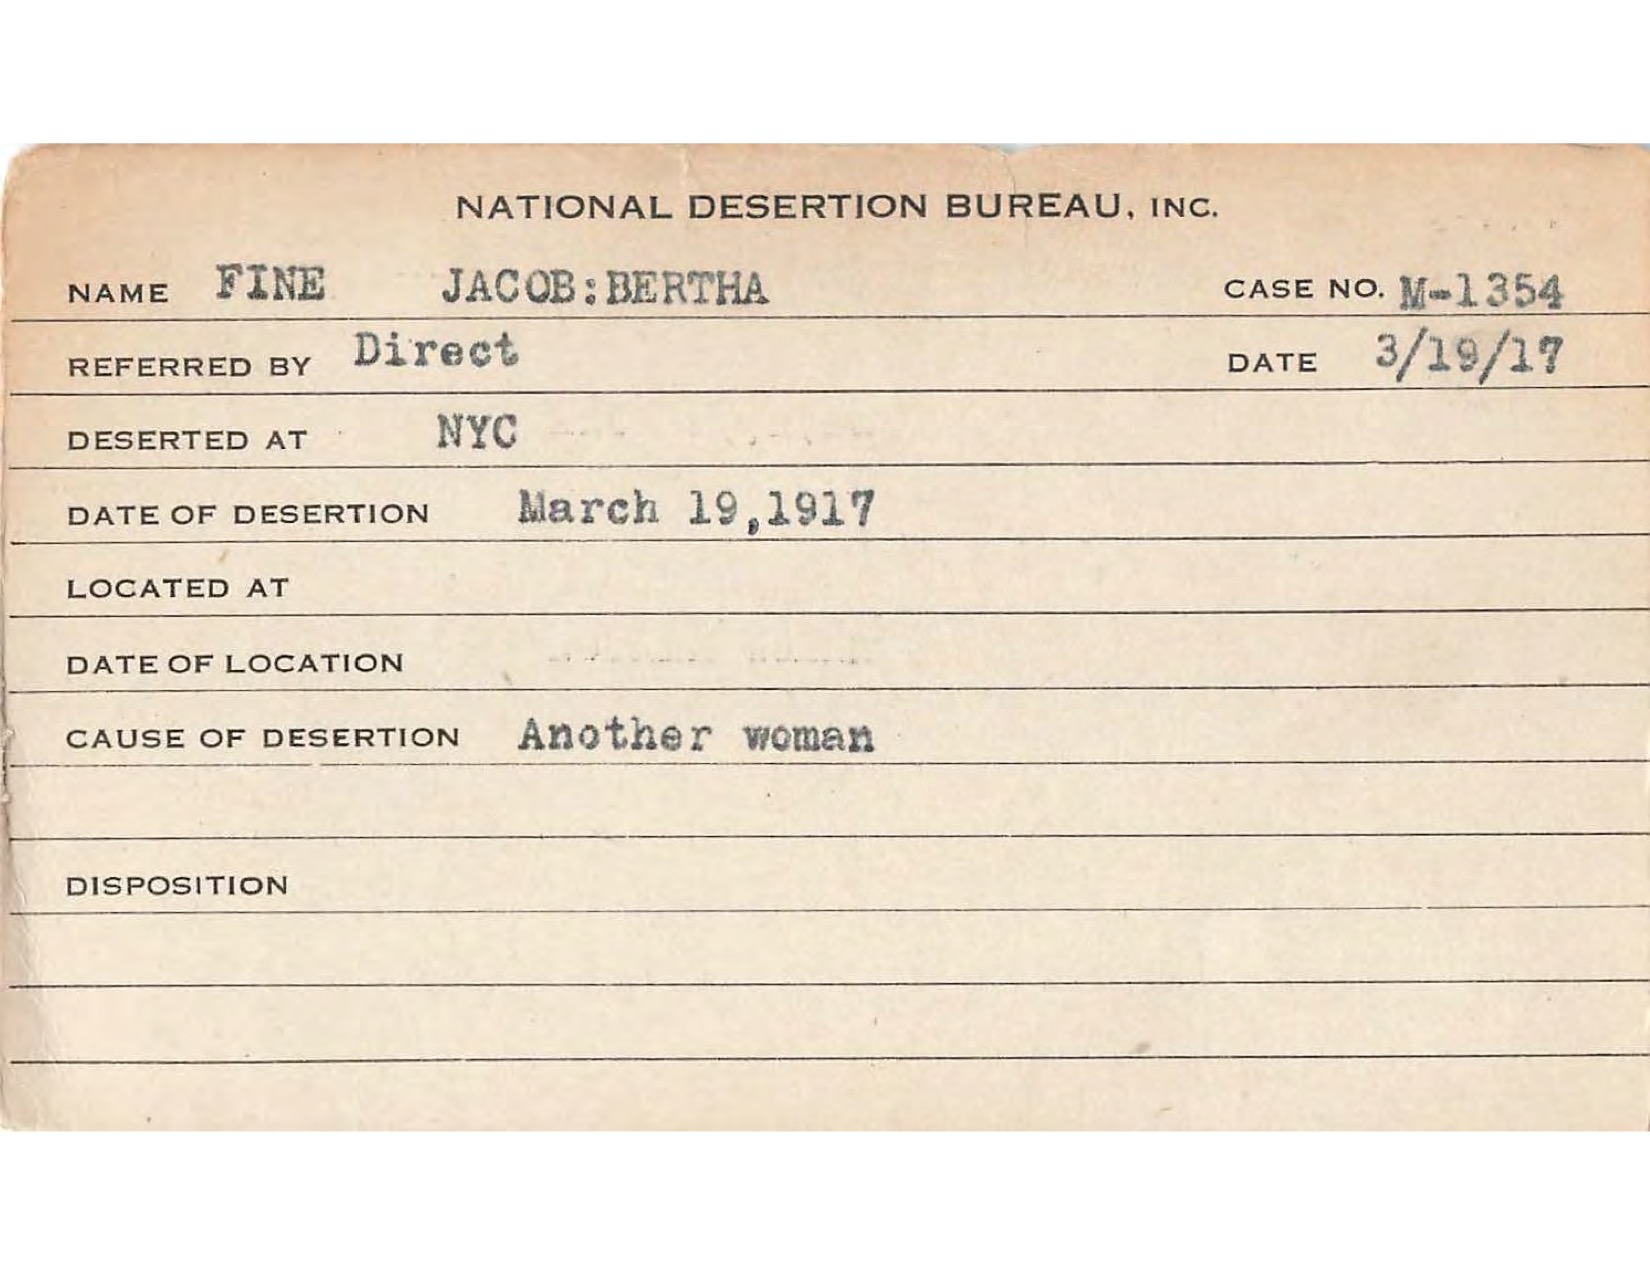 NATIONAL DESERTION BUREAU, INC.
NAME FINE JACOB:BERTHA CASE NO. M-1354
REFERRED BY Direct DATE 3/19/17
DESERTED AT NYC
DATE OF DESERTION March 19,1917
LOCATED AT
DATE OF LOCATION
CAUSE OF DESERTION Another woman
DISPOSITION